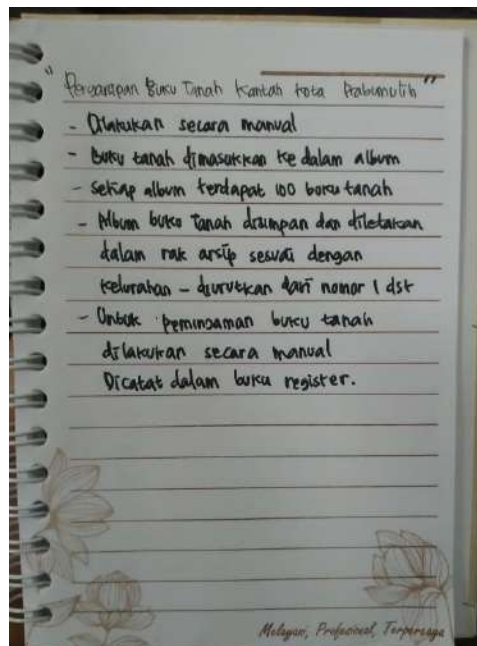 "Pengarapan Buku Tanah Kantah Kota Prabumulih"
- Dilakukan secara manual
- Buku tanah dimasukkan ke dalam album
- Setiap album terdapat 100 buku tanah
- Album buku Tanah disimpan dan diletakan
dalam rak arsip sesuai dengan
kelurahan - diurutkan dari nomor 1 dst
- Untuk peminjaman buku tanah
dilakukan secara manual
Dicatat dalam buku register.
Melayani, Profesional, Terpercaya